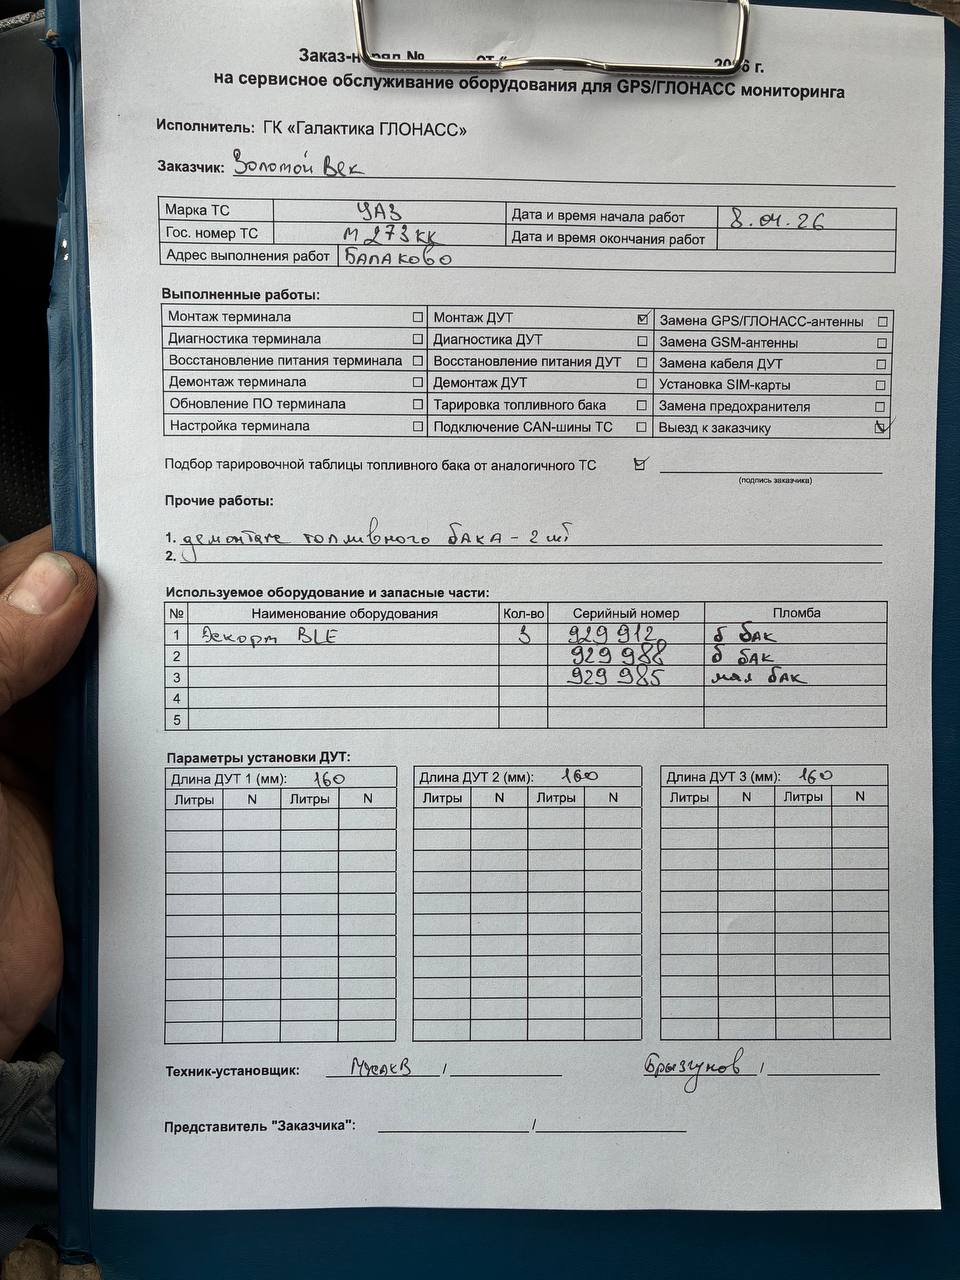 Заказ-наряд № от « 2026 г.
на сервисное обслуживание оборудования для GPS/ГЛОНАСС мониторинга
Исполнитель: ГК «Галактика ГЛОНАСС»
Заказчик: Золотой Век
Марка ТС УАЗ Дата и время начала работ 8.04.26
Гос. номер ТС М 273 КК Дата и время окончания работ
Адрес выполнения работ БАЛАКОВО
Выполненные работы:
Монтаж терминала ☐ Монтаж ДУТ ☑ Замена GPS/ГЛОНАСС-антенны ☐
Диагностика терминала ☐ Диагностика ДУТ ☐ Замена GSM-антенны ☐
Восстановление питания терминала ☐ Восстановление питания ДУТ ☐ Замена кабеля ДУТ ☐
Демонтаж терминала ☐ Демонтаж ДУТ ☐ Установка SIM-карты ☐
Обновление ПО терминала ☐ Тарировка топливного бака ☐ Замена предохранителя ☐
Настройка терминала ☐ Подключение CAN-шины ТС ☐ Выезд к заказчику ☑
Подбор тарировочной таблицы топливного бака от аналогичного ТС ☑
(подпись заказчика)
Прочие работы:
1. демонтаж топливного бака - 2 шт
2.
Используемое оборудование и запасные части:
№ Наименование оборудования Кол-во Серийный номер Пломба
1 Эскорт BLE 3 929 912 б бак
2 929 988 б бак
3 929 985 мал бак
4
5
Параметры установки ДУТ:
Длина ДУТ 1 (мм): 160 Длина ДУТ 2 (мм): 160 Длина ДУТ 3 (мм): 160
Литры N Литры N Литры N Литры N Литры N Литры N
Техник-установщик: / Брызгунов /
Представитель "Заказчика": /